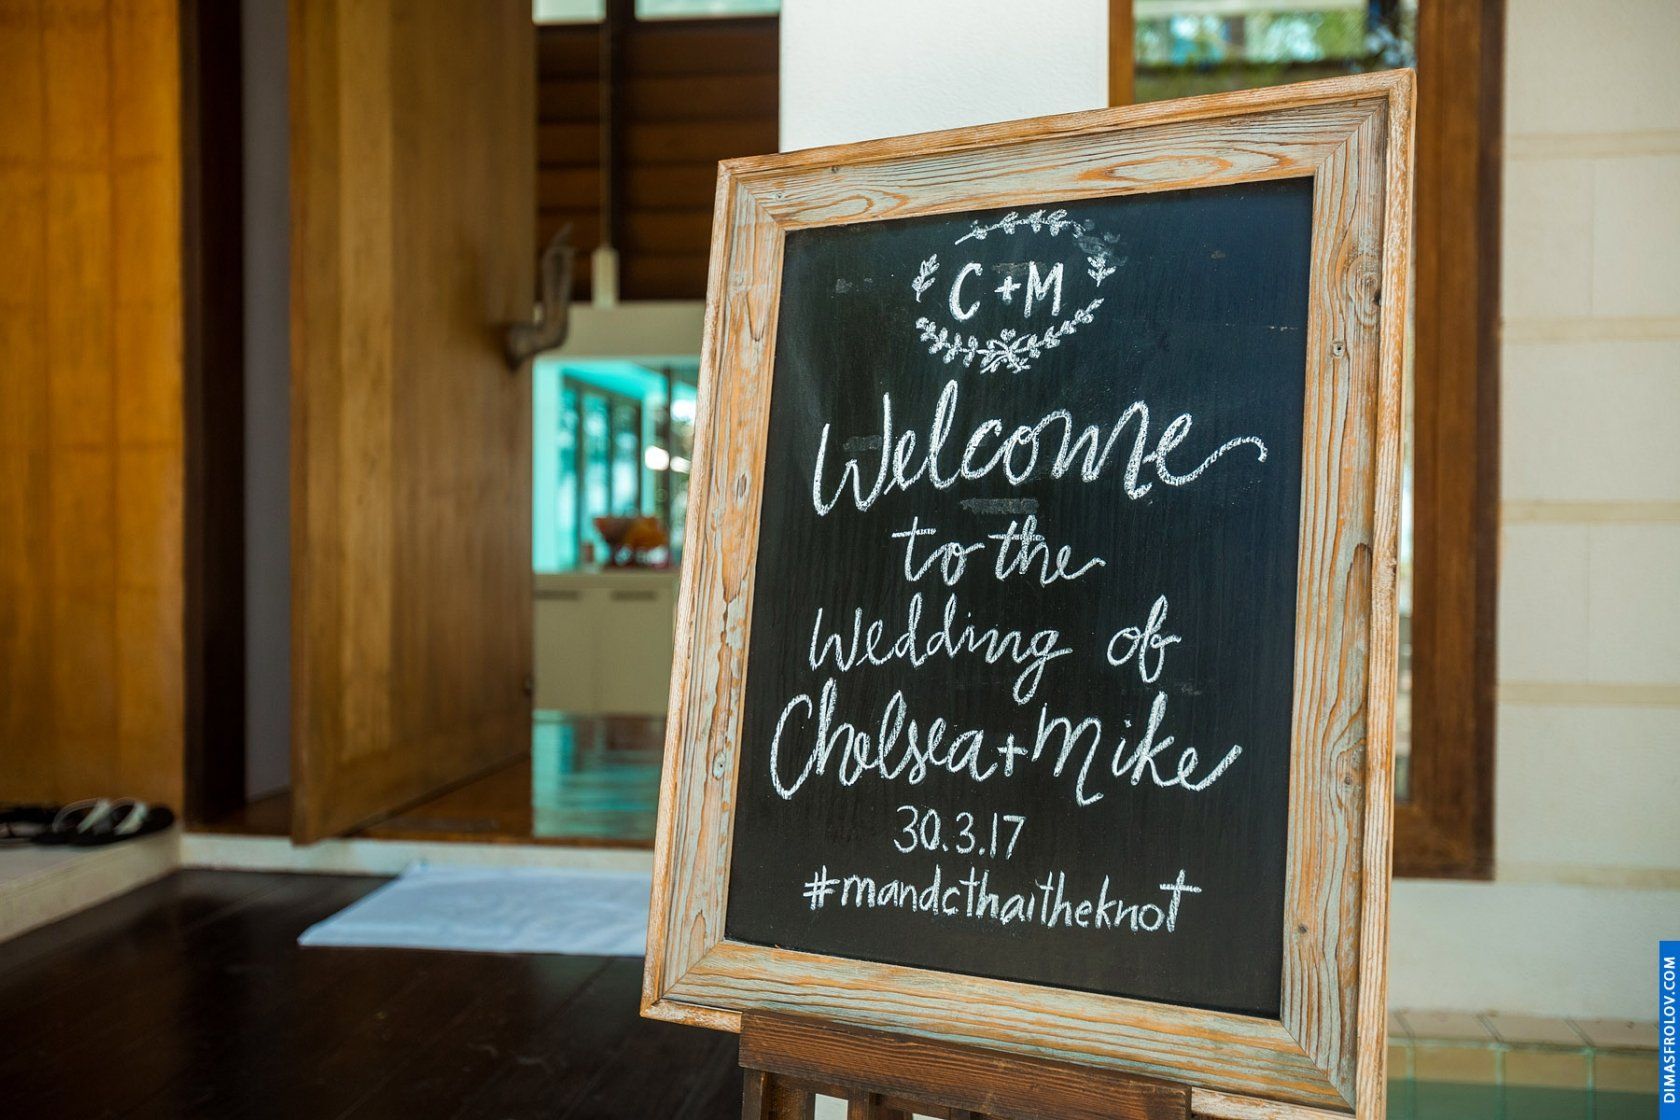 C + M
Welcome
to the
Wedding of
Chelsea + Mike
30.3.17
#mandcthaitheknot
DIMASFROLOV.COM